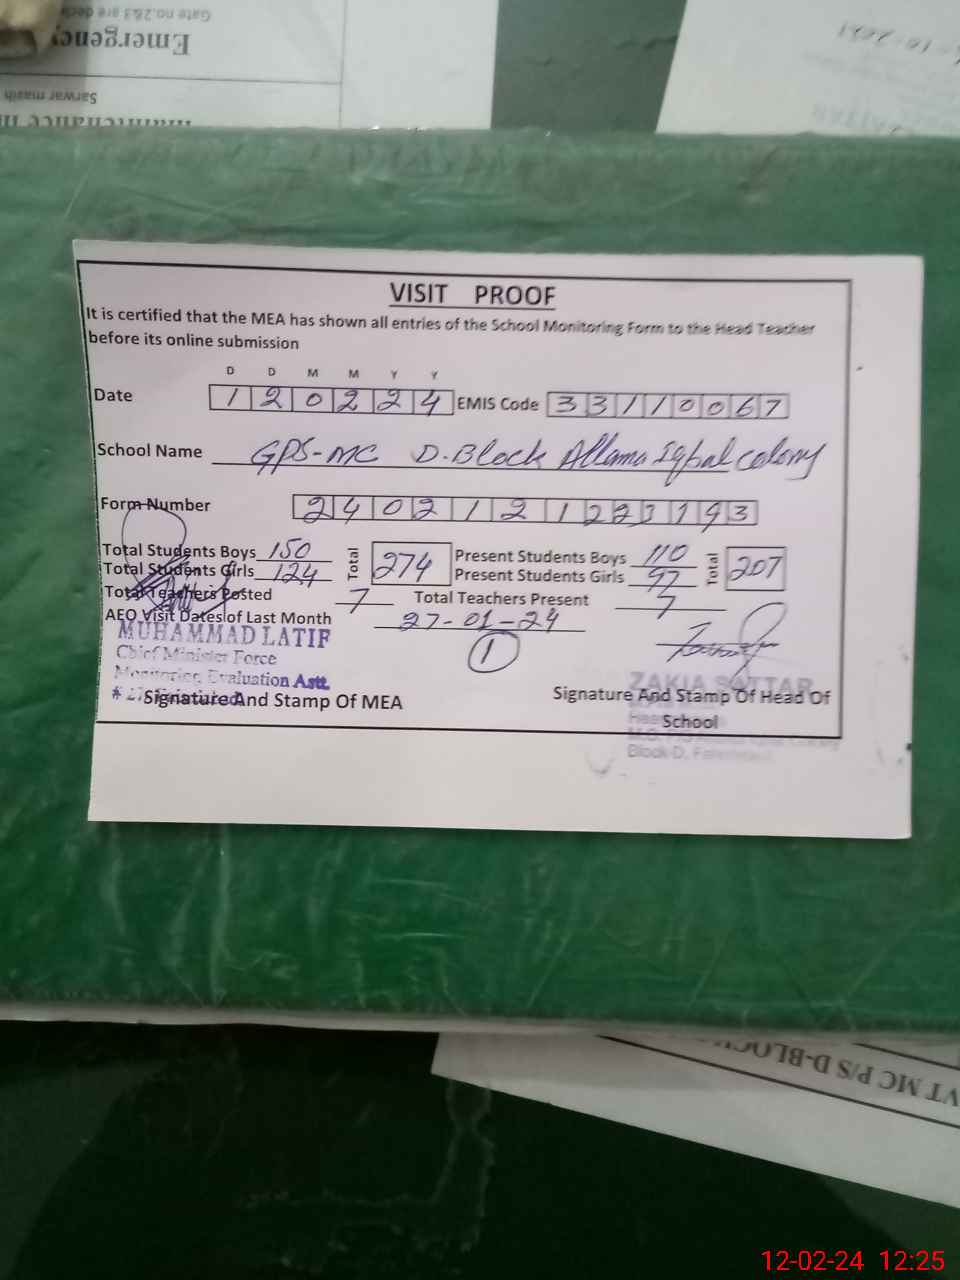 Gate no.2&3 are
Emergency
Sarwar masih
maintenance
VISIT PROOF
It is certified that the MEA has shown all entries of the School Monitoring Form to the Head Teacher
before its online submission
D D M M Y Y
Date 1 2 0 2 2 4 EMIS Code 3 3 1 1 0 0 6 7
School Name GPS-MC D.Block Allama Iqbal Colony
Form Number 2 4 0 2 1 2 1 2 2 3 1 9 3
Total Students Boys 150 Total 274 Present Students Boys 110 Total 207
Total Students Girls 124 Present Students Girls 97
Total Teachers Posted 7 Total Teachers Present 7
AEO Visit Dates of Last Month 27-01-24
MUHAMMAD LATIF
Chief Minister Force
Monitoring Evaluation Astt.
1
Signature And Stamp Of MEA
ZAKIA SATTAR
Signature And Stamp Of Head Of
School
Block-D,
VT MC P/S D-BLOCK
12-02-24 12:25